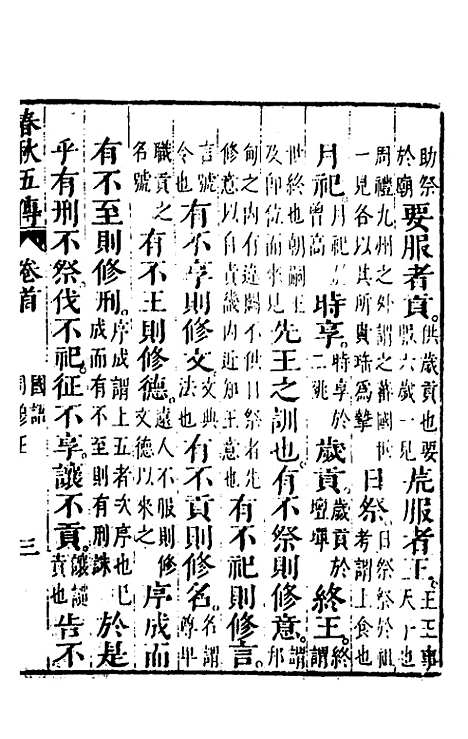 助祭於廟要服者貢供歲貢也要服六歲一見荒服者王王王事天子也
周禮九州之外謂之蕃國世一見各以其所貴珤為摯日祭日祭祭於祖考謂上食也
月祀月祀於曾高時享時享於二祧歲貢歲貢於壇墠終王終謂
世終也朝嗣王及即位而來見先王之訓也有不祭則修意邦
甸之內有違闕不供日祭者先修意以自責畿內近知王意也有不祀則修言
言號令也有不享則修文文典法也有不貢則修名名謂尊卑
職貢之名號有不王則修德遠人不服則修文德以來之序成而
有不至則修刑序成謂上五者次序也已成而有不至則有刑誅於是
乎有刑不祭伐不祀征不享讓不貢讓譴責也告不
春秋五傳 卷首 國語 周穆王 三